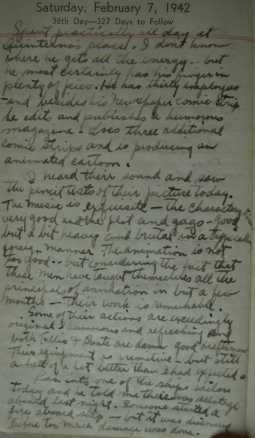 Saturday, February 7, 1942
38th Day—327 Days to Follow
Spent practically all day at
Quinterno's place. I don't know
where he gets all the energy - but
he most certainly has his finger in
plenty of pies. He has thirty employees
and besides his newspaper comic strip
he edits and publishes a humorous
magazine - does three additional
comic strips and is producing an
animated cartoon.
I heard their sound and saw
the pencil tests of their picture today.
The music is exquisite - the characters
very good and the plot and gags - good
but a bit heavy and brutal in a typically
foreign manner. The animation is not
too good - but considering the fact that
these men have taught themselves all the
principals of animation in but a few
months - their work is remarkable.
Some of their actions are exceedingly
original & humorous and refreshing and
both & Dante are damn good
Their equipment is primitive - but still
a hell of a lot better than I had expected
Ran into one of the ships sailors
today and he told me there was sabotage
aboard last night. Someone started a
fire aboard ship - but it was discovered
before too much damage was done.